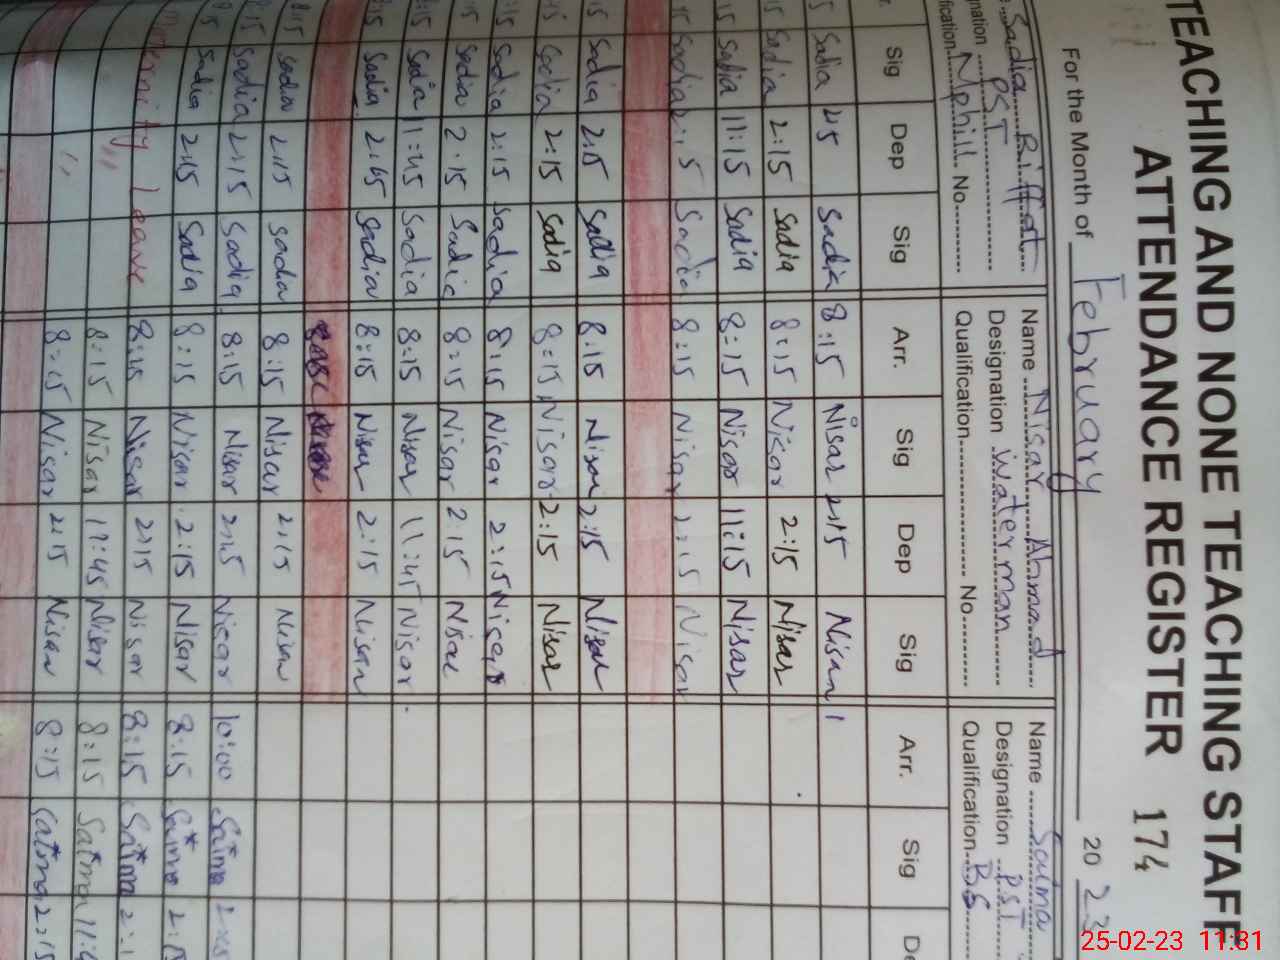 TEACHING AND NONE TEACHING STAFF
ATTENDANCE REGISTER 174
For the Month of February 2023
Sadia Riffat Name Nisar Ahmad Name Saima
nation PST Designation Water man Designation PST
fication Mphill No. Qualification No. Qualification BS
Sig Dep Sig Arr. Sig Dep Sig Arr. Sig De
Sadia Sadia 8:15 Nisar 2:15 Nisar
Sadia 2:15 Sadia 8:15 Nisar 2:15 Nisar
Sadia 11:15 Sadia 8:15 Nisar 11:15 Nisar
Sadia 2:15 Sadia 8:15 Nisar 2:15 Nisar
Sadia 2:15 Sadia 8:15 Nisar 2:15 Nisar
Sadia 2:15 Sadia 8:15 Nisar 2:15 Nisar
Sadia 2:15 Sadia 8:15 Nisar 2:15 Nisar
Sadia 2:15 Sadia 8:15 Nisar 2:15 Nisar
Sadia 11:45 Sadia 8:15 Nisar 11:45 Nisar
Sadia Sadia 8:15 Nisar 2:15 Nisar
8:15 Sadia 2:15 Sadia 8:15 Nisar 2:15 Nisar
8:15 Sadia 2:15 Sadia 8:15 Nisar Nisar 10:00 Saima
Sadia 2:15 Sadia 8:15 Nisar 2:15 Nisar 8:15 Saima
Maternity Leave 8:15 Nisar 2:15 Nisar 8:15 Saima
" 8:15 Nisar 11:45 Nisar 8:15 Saima
" 8:15 Nisar 2:15 Nisar 8:15 Saima 2:15
25-02-23 11:31